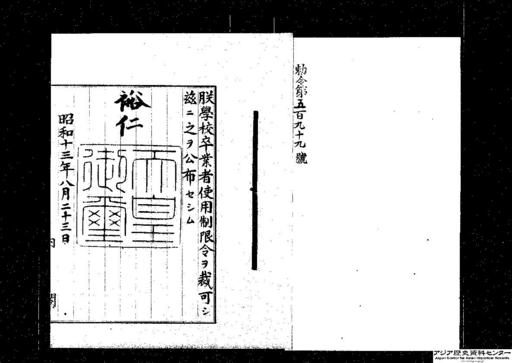 勅令第五百九十九號
朕學校卒業者使用制限令ヲ裁可シ
玆ニ之ヲ公布セシム
裕仁
天皇御璽
昭和十三年八月二十三日
内閣
アジア歴史資料センター
Japan Center for Asian Historical Records